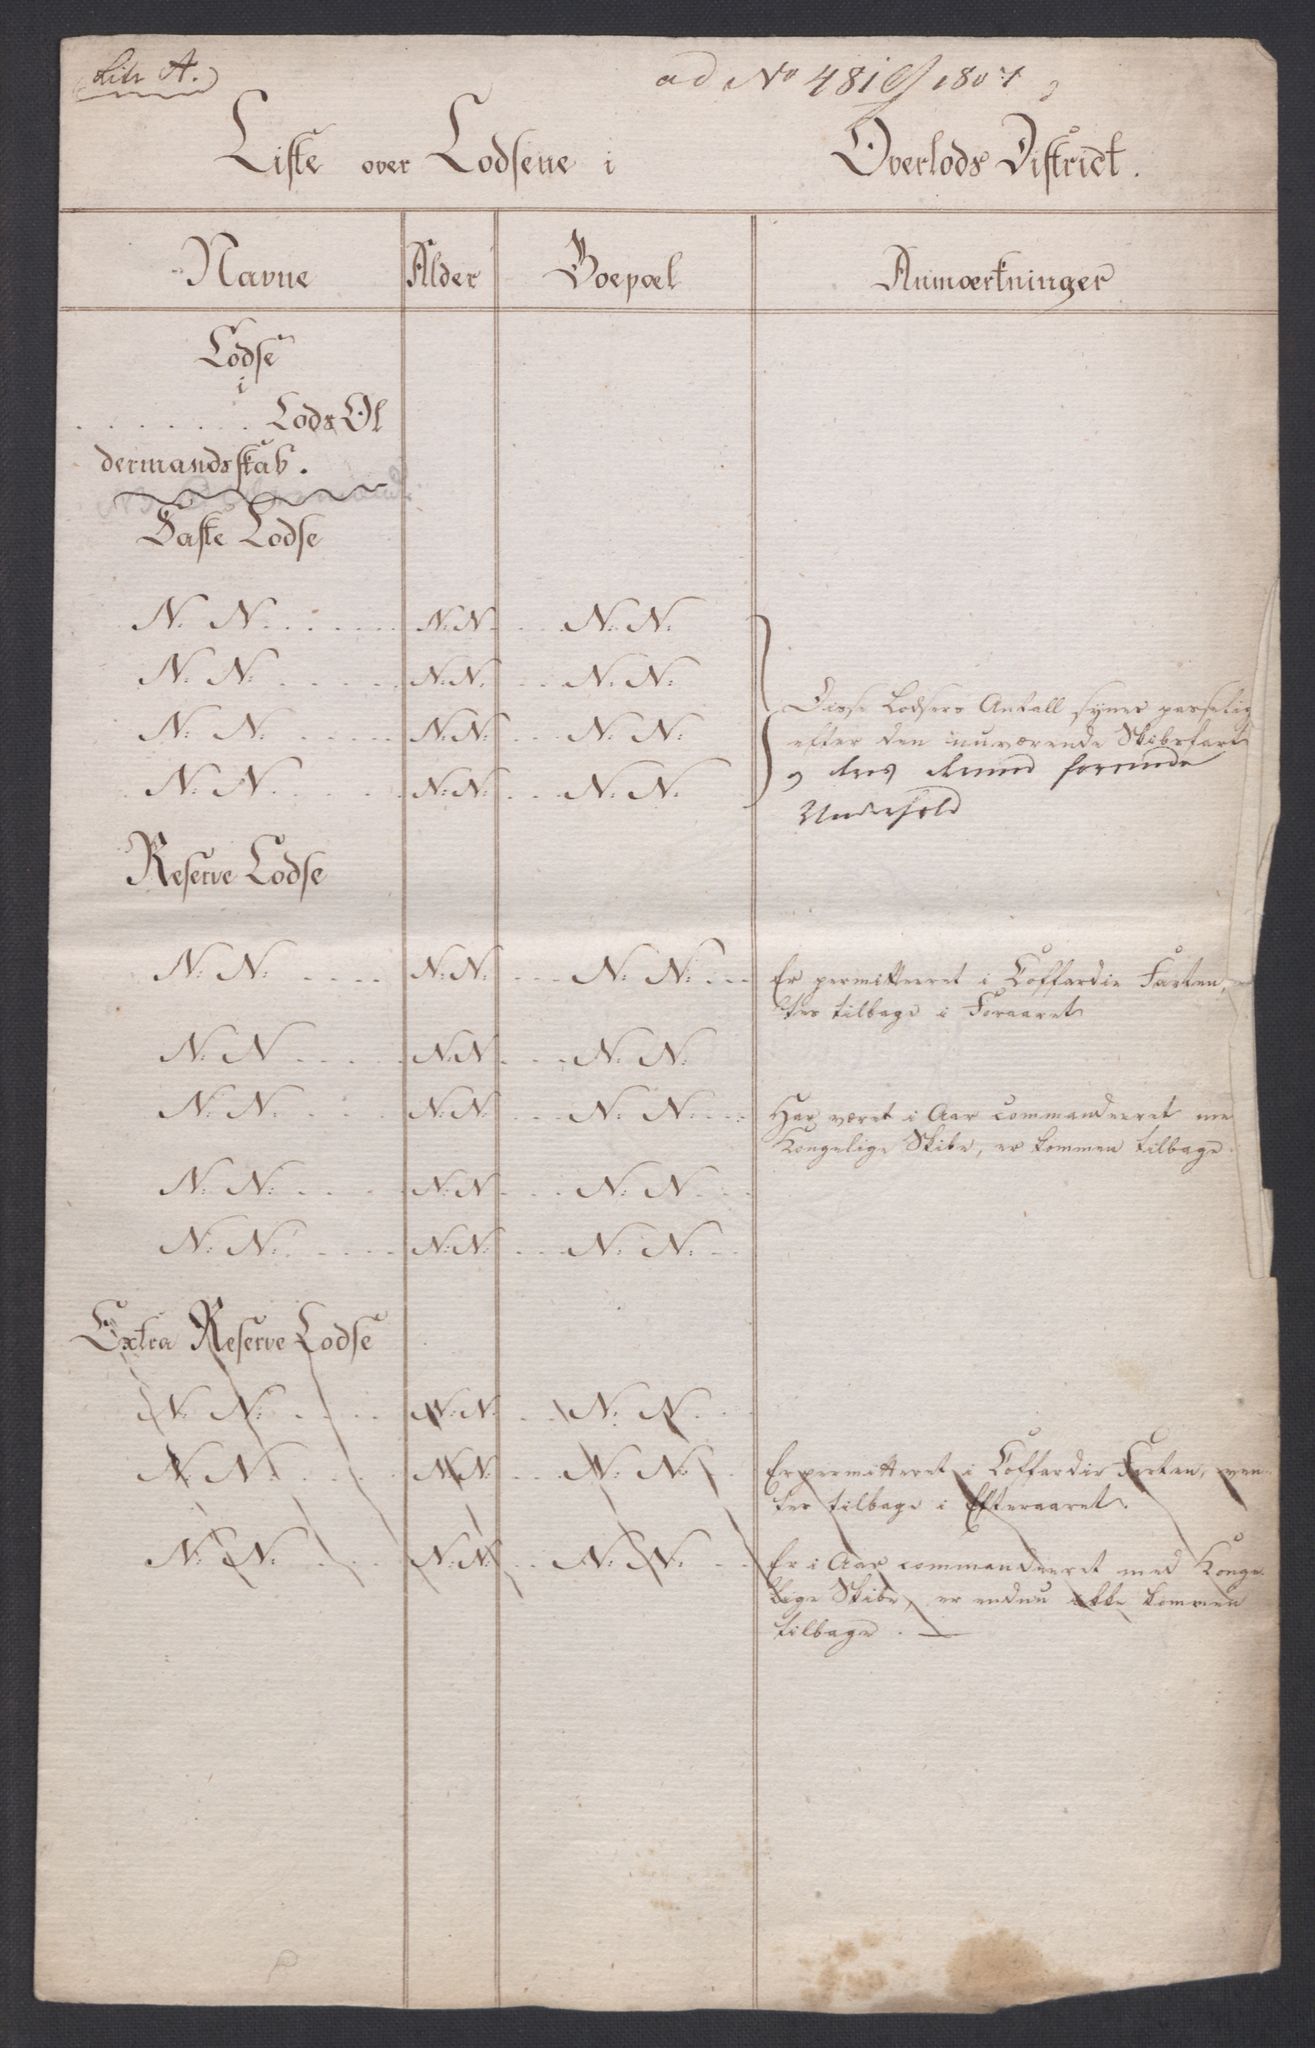 Litr A.
ad No 481 1807
Liste over Lodsene i Overlods District.
Navne Alder Boepæl Anmærkninger
Lodse
i
. . . . . . . . Lods Ol
dermandsskab.
Faste Lodse
N: N: . . . . . N:N: . . . N: N:
N: N: . . . . . N:N: . . . N: N:
N: N: . . . . . N:N: . . . N: N:
N: N: . . . . . N:N: . . . N: N:
Disse Lodsers Antall synes passelig
efter den nuværende Skibsfart
og deres derved
Underhold
Reserve Lodse
N: N: . . . . N:N: . . . N: N: . . .
Er permitteret i Coffardie Farten,
tes tilbage i Foraaret
N: N . . . . . N:N . . . . N: N:
N: N: . . . . . N:N: . . . N: N: . . .
Har været i Aar commanderet me
Kongelige Skibe, er kommen tilbage.
N: N: . . . . . N:N . . . . N: N . . .
N: N: . . . . . N:N: . . . N: N: . . .
Extra Reserve Lodse
N: N: . . . . N:N: . . . N: N . . .
N: N: . . . . N:N: . . . N: N: . .
Er permitteret i Coffardie Farten, ven-
tes tilbage i Efteraaret.
N: N: . . . . N:N: . . . N: N: . . .
Er i Aar commanderet med Konge-
lige Skibe, er endnu ikke kommen
tilbage.